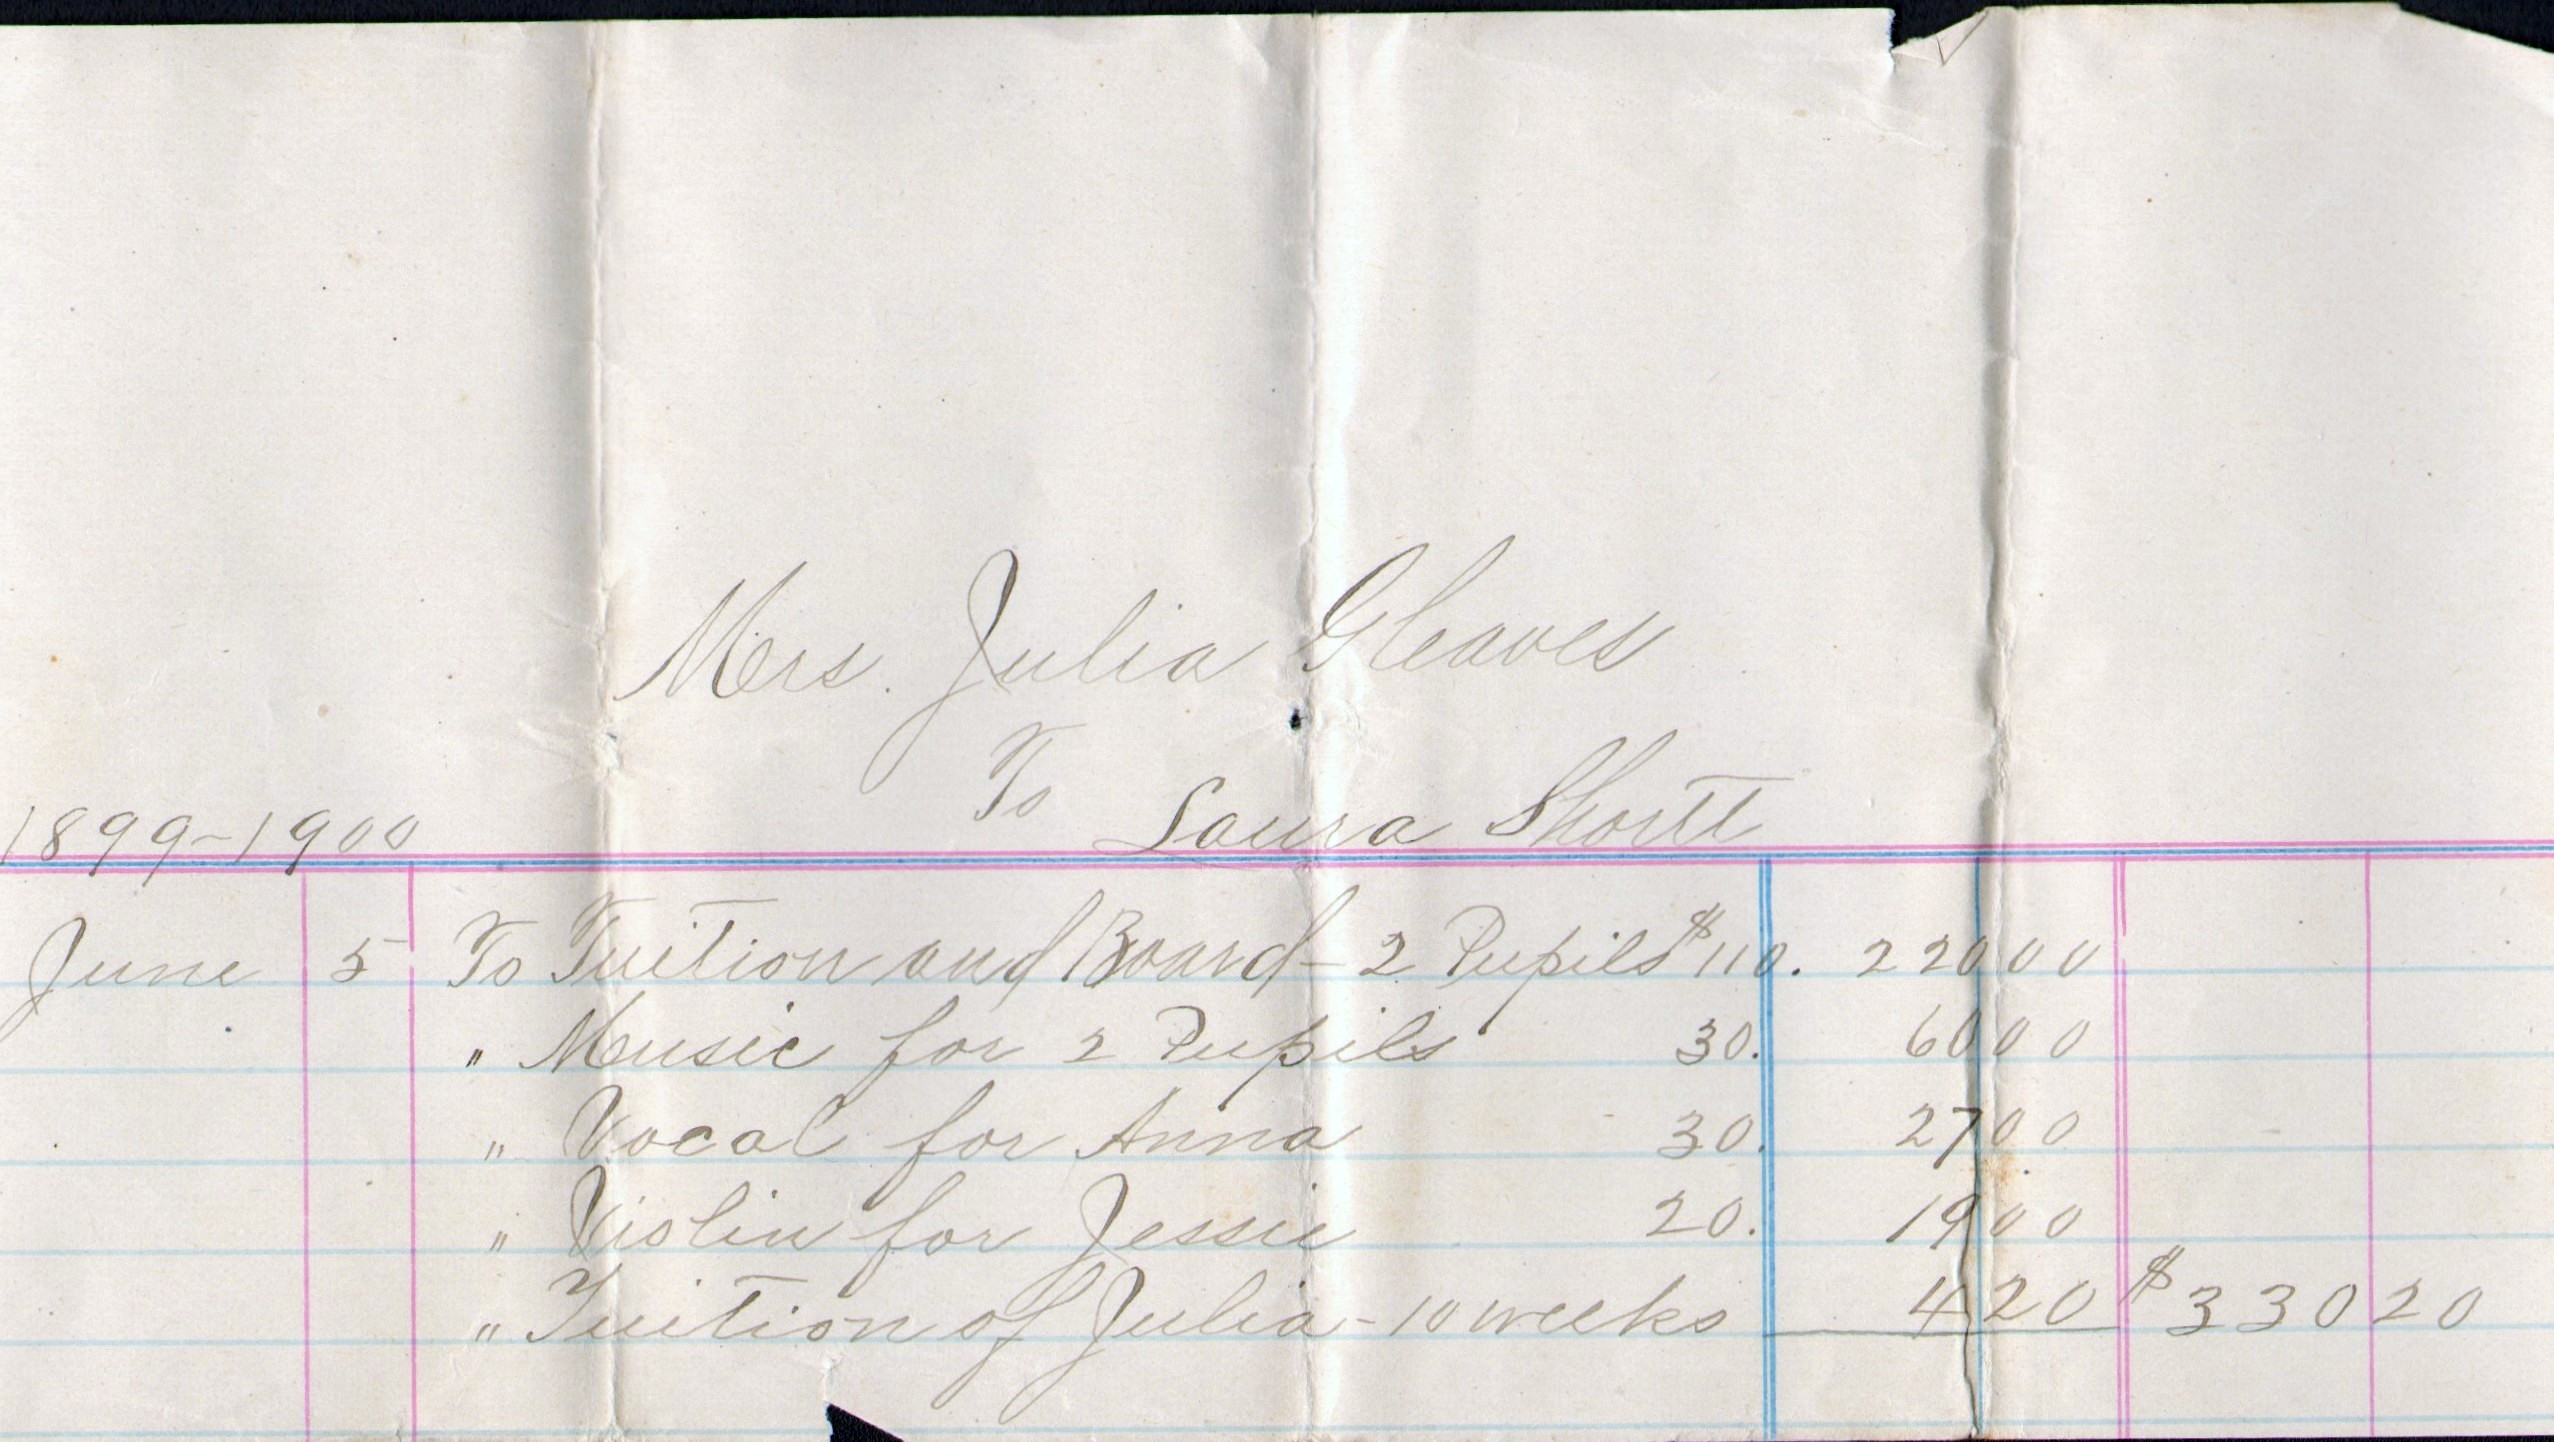 Mrs. Julia Gleaves
To
Laura Shortt
1899-1900
June 5 To Tuition and Board - 2 Pupils $110. 220 00
" Music for 2 Pupils 30. 60 00
" Vocal for Anna 30. 27 00
" Violin for Jessie 20. 19 00
" Tuition of Julia - 10 weeks 4 20 $330 20